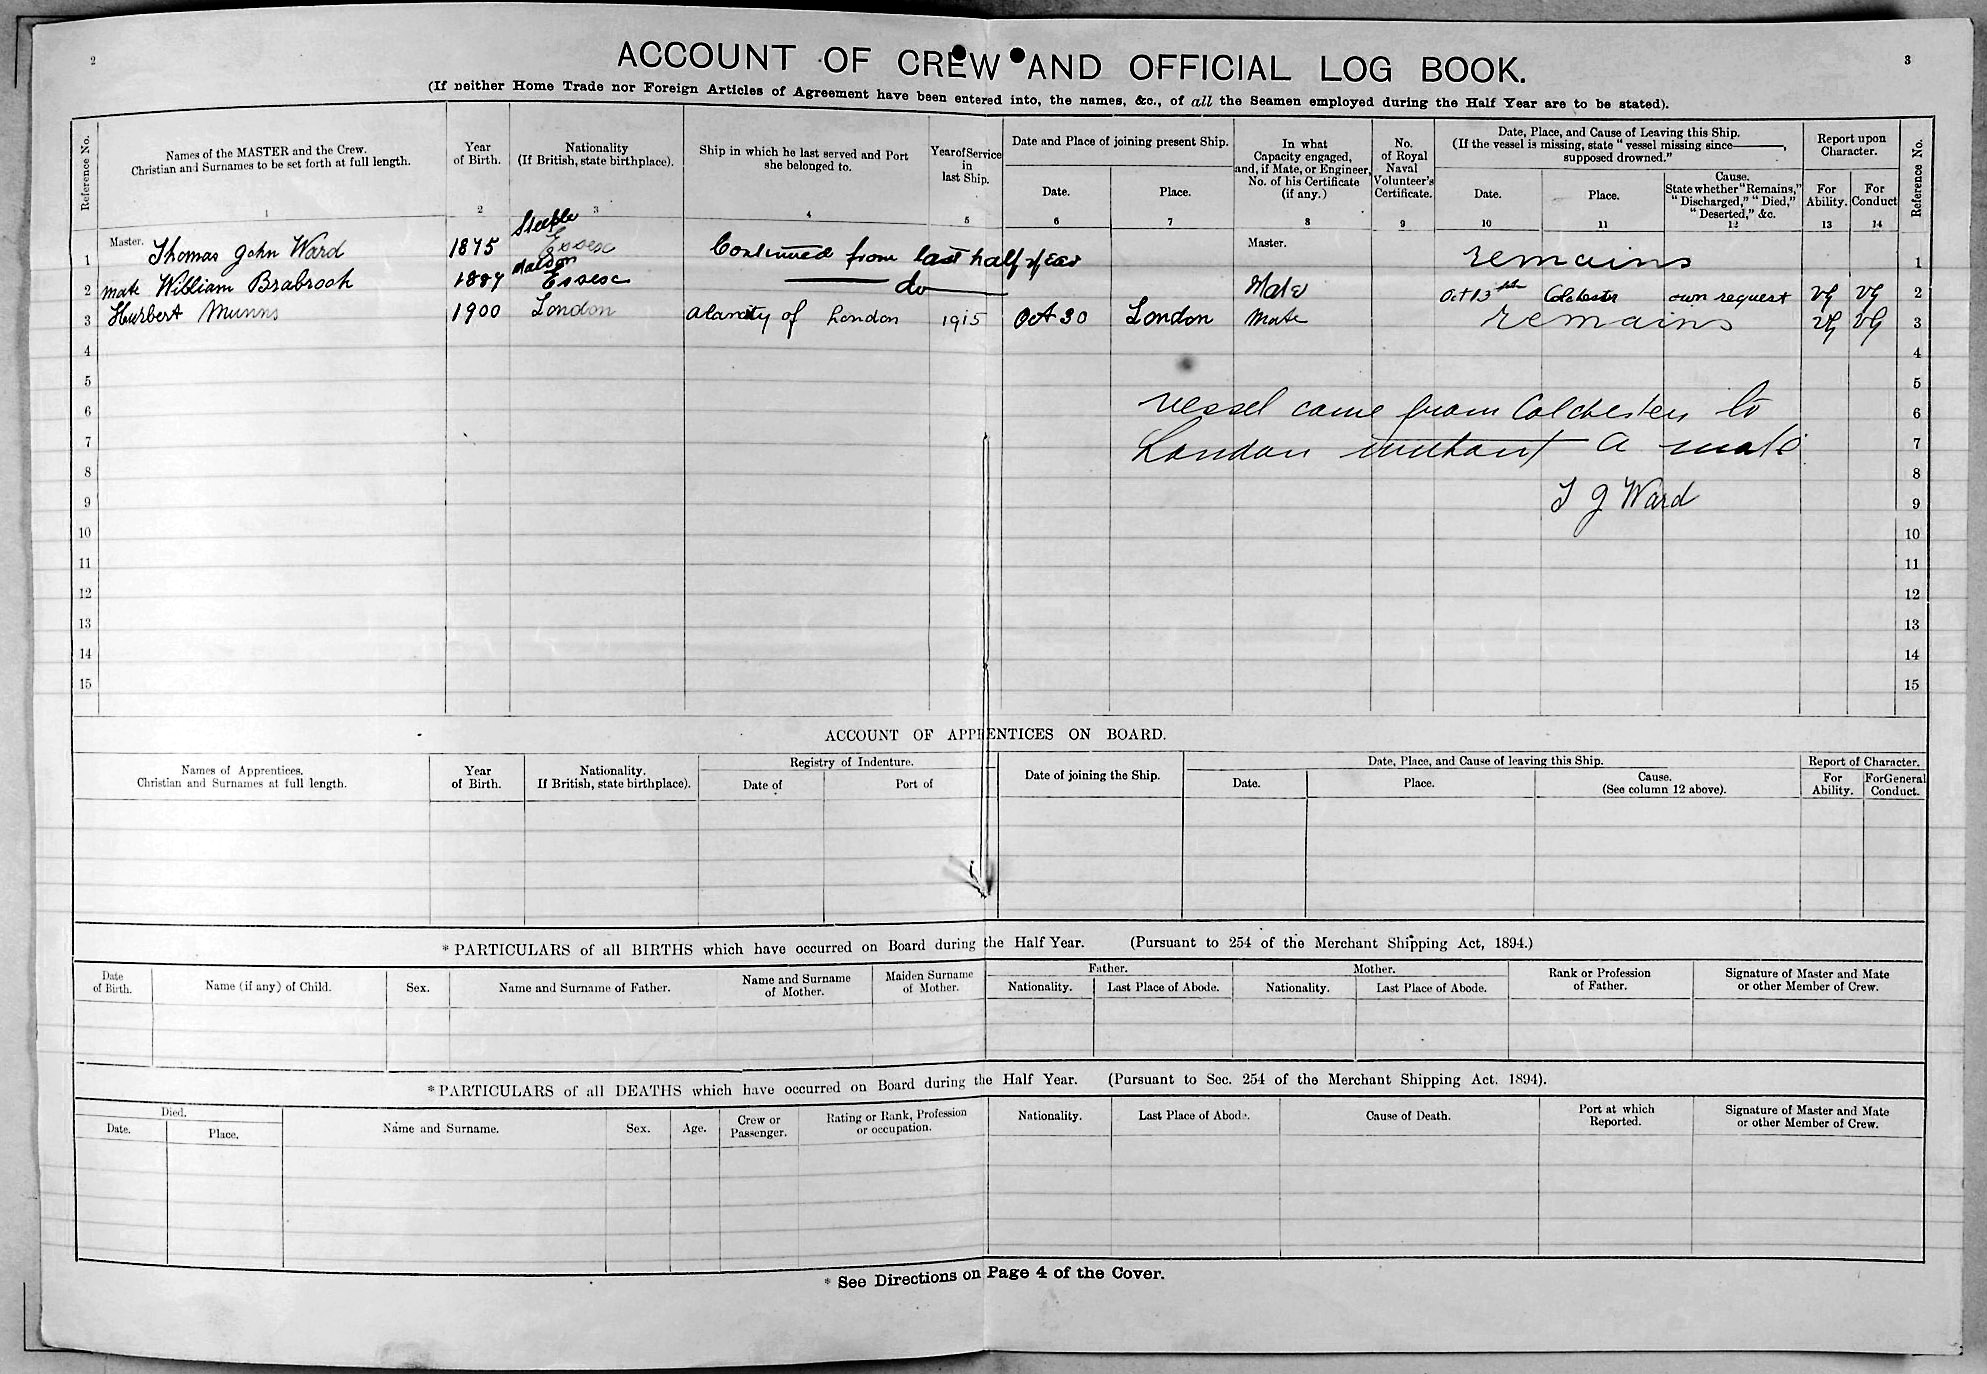 2
3
ACCOUNT OF CREW AND OFFICIAL LOG BOOK.
(If neither Home Trade nor Foreign Articles of Agreement have been entered into, the names, &c., of all the Seamen employed during the Half Year are to be stated).
Reference No.
Names of the MASTER and the Crew.
Christian and Surnames to be set forth at full length.
1
Year
of Birth.
2
Nationality
(If British, state birthplace).
3
Ship in which he last served and Port
she belonged to.
4
Year of Service
in
last Ship.
5
Date and Place of joining present Ship.
Date.
6
Place.
7
In what
Capacity engaged,
and, if Mate, or Engineer,
No. of his Certificate
(if any.)
8
No.
of Royal
Naval
Volunteer's
Certificate.
9
Date, Place, and Cause of Leaving this Ship.
(If the vessel is missing, state "vessel missing since———,
supposed drowned."
Date.
10
Place.
11
Cause.
State whether "Remains,"
"Discharged," "Died,"
"Deserted," &c.
12
Report upon
Character.
For
Ability.
13
For
Conduct
14
Reference No.
Steeple
1 Master. Thomas John Ward 1875 Essex Continued from last half year Master. remains 1
Maldon
2 mate William Brabrook 1887 Essex do Mate Oct 13th Colchester own request VG VG 2
3 Hurbert Munns 1900 London alarcity of London 1915 Oct 30 London Mate remains VG VG 3
4 4
5 5
6 vessel came from Colchester to 6
7 London without a mate 7
8 8
9 T J Ward 9
10 10
11 11
12 12
13 13
14 14
15 15
ACCOUNT OF APPRENTICES ON BOARD.
Names of Apprentices.
Christian and Surnames at full length.
Year
of Birth.
Nationality.
If British, state birthplace).
Registry of Indenture.
Date of
Port of
Date of joining the Ship.
Date, Place, and Cause of leaving this Ship.
Date.
Place.
Cause.
(See column 12 above).
Report of Character.
For
Ability.
For General
Conduct.
* PARTICULARS of all BIRTHS which have occurred on Board during the Half Year. (Pursuant to 254 of the Merchant Shipping Act, 1894.)
Date
of Birth.
Name (if any) of Child.
Sex.
Name and Surname of Father.
Name and Surname
of Mother.
Maiden Surname
of Mother.
Father.
Nationality.
Last Place of Abode.
Mother.
Nationality.
Last Place of Abode.
Rank or Profession
of Father.
Signature of Master and Mate
or other Member of Crew.
* PARTICULARS of all DEATHS which have occurred on Board during the Half Year. (Pursuant to Sec. 254 of the Merchant Shipping Act. 1894).
Died.
Date.
Place.
Name and Surname.
Sex.
Age.
Crew or
Passenger.
Rating or Rank, Profession
or occupation.
Nationality.
Last Place of Abode.
Cause of Death.
Port at which
Reported.
Signature of Master and Mate
or other Member of Crew.
* See Directions on Page 4 of the Cover.